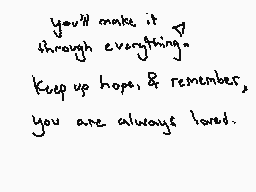 you'll make it
through everything.
Keep up hope, & remember,
you are always loved.